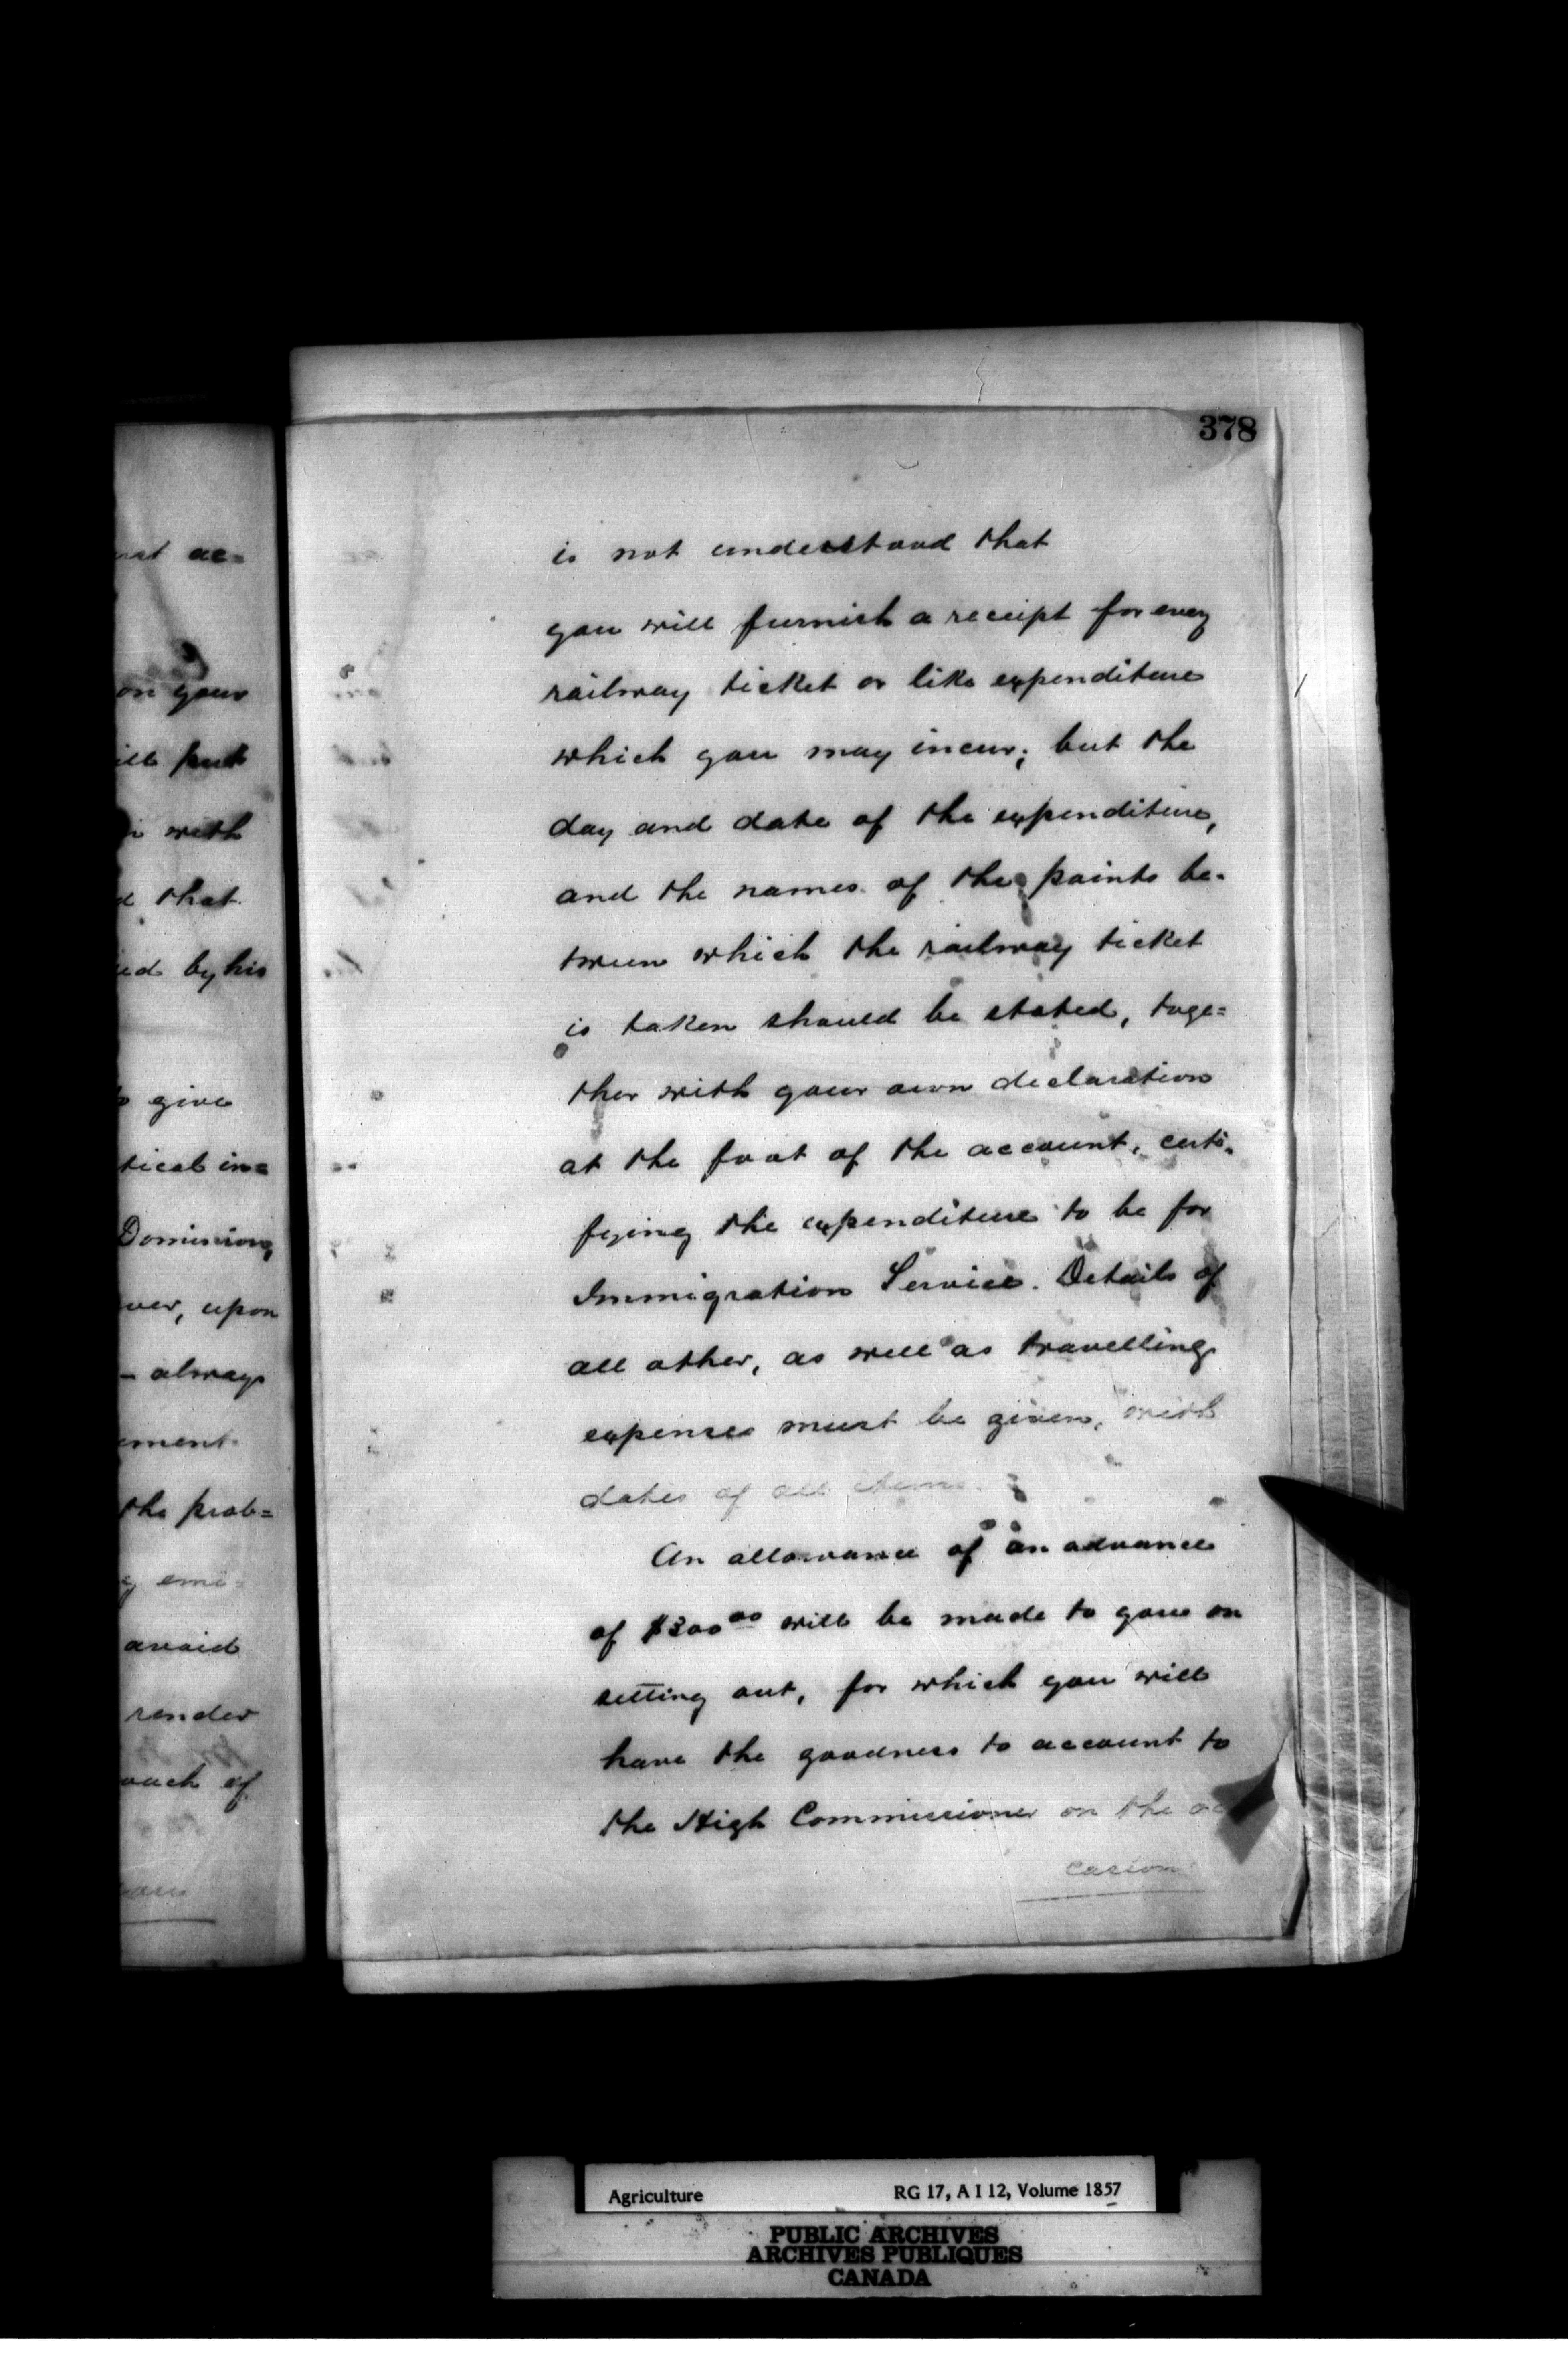 378
is not understood that
you will furnish a receipt for every
railway ticket or like expenditure
which you may incur; but the
day and date of the expenditure,
and the names of the points be-
tween which the railway ticket
is taken should be stated, toge=
ther with your own declaration
at the foot of the account, certi-
fying the expenditure to be for
Immigration Service. Details of
all other, as well as travelling
expenses must be given, with
dates of all items.
An allowance of an advance
of $300 00 will be made to you on
setting out, for which you will
have the goodness to account to
the High Commissioner on the oc
casion
ac=
on your
put
with
that
by his
give
in=
Dominion,
upon
- always
the prob=
emi=
avoid
render
of
Agriculture RG 17, A I 12, Volume 1857
PUBLIC ARCHIVES
ARCHIVES PUBLIQUES
CANADA